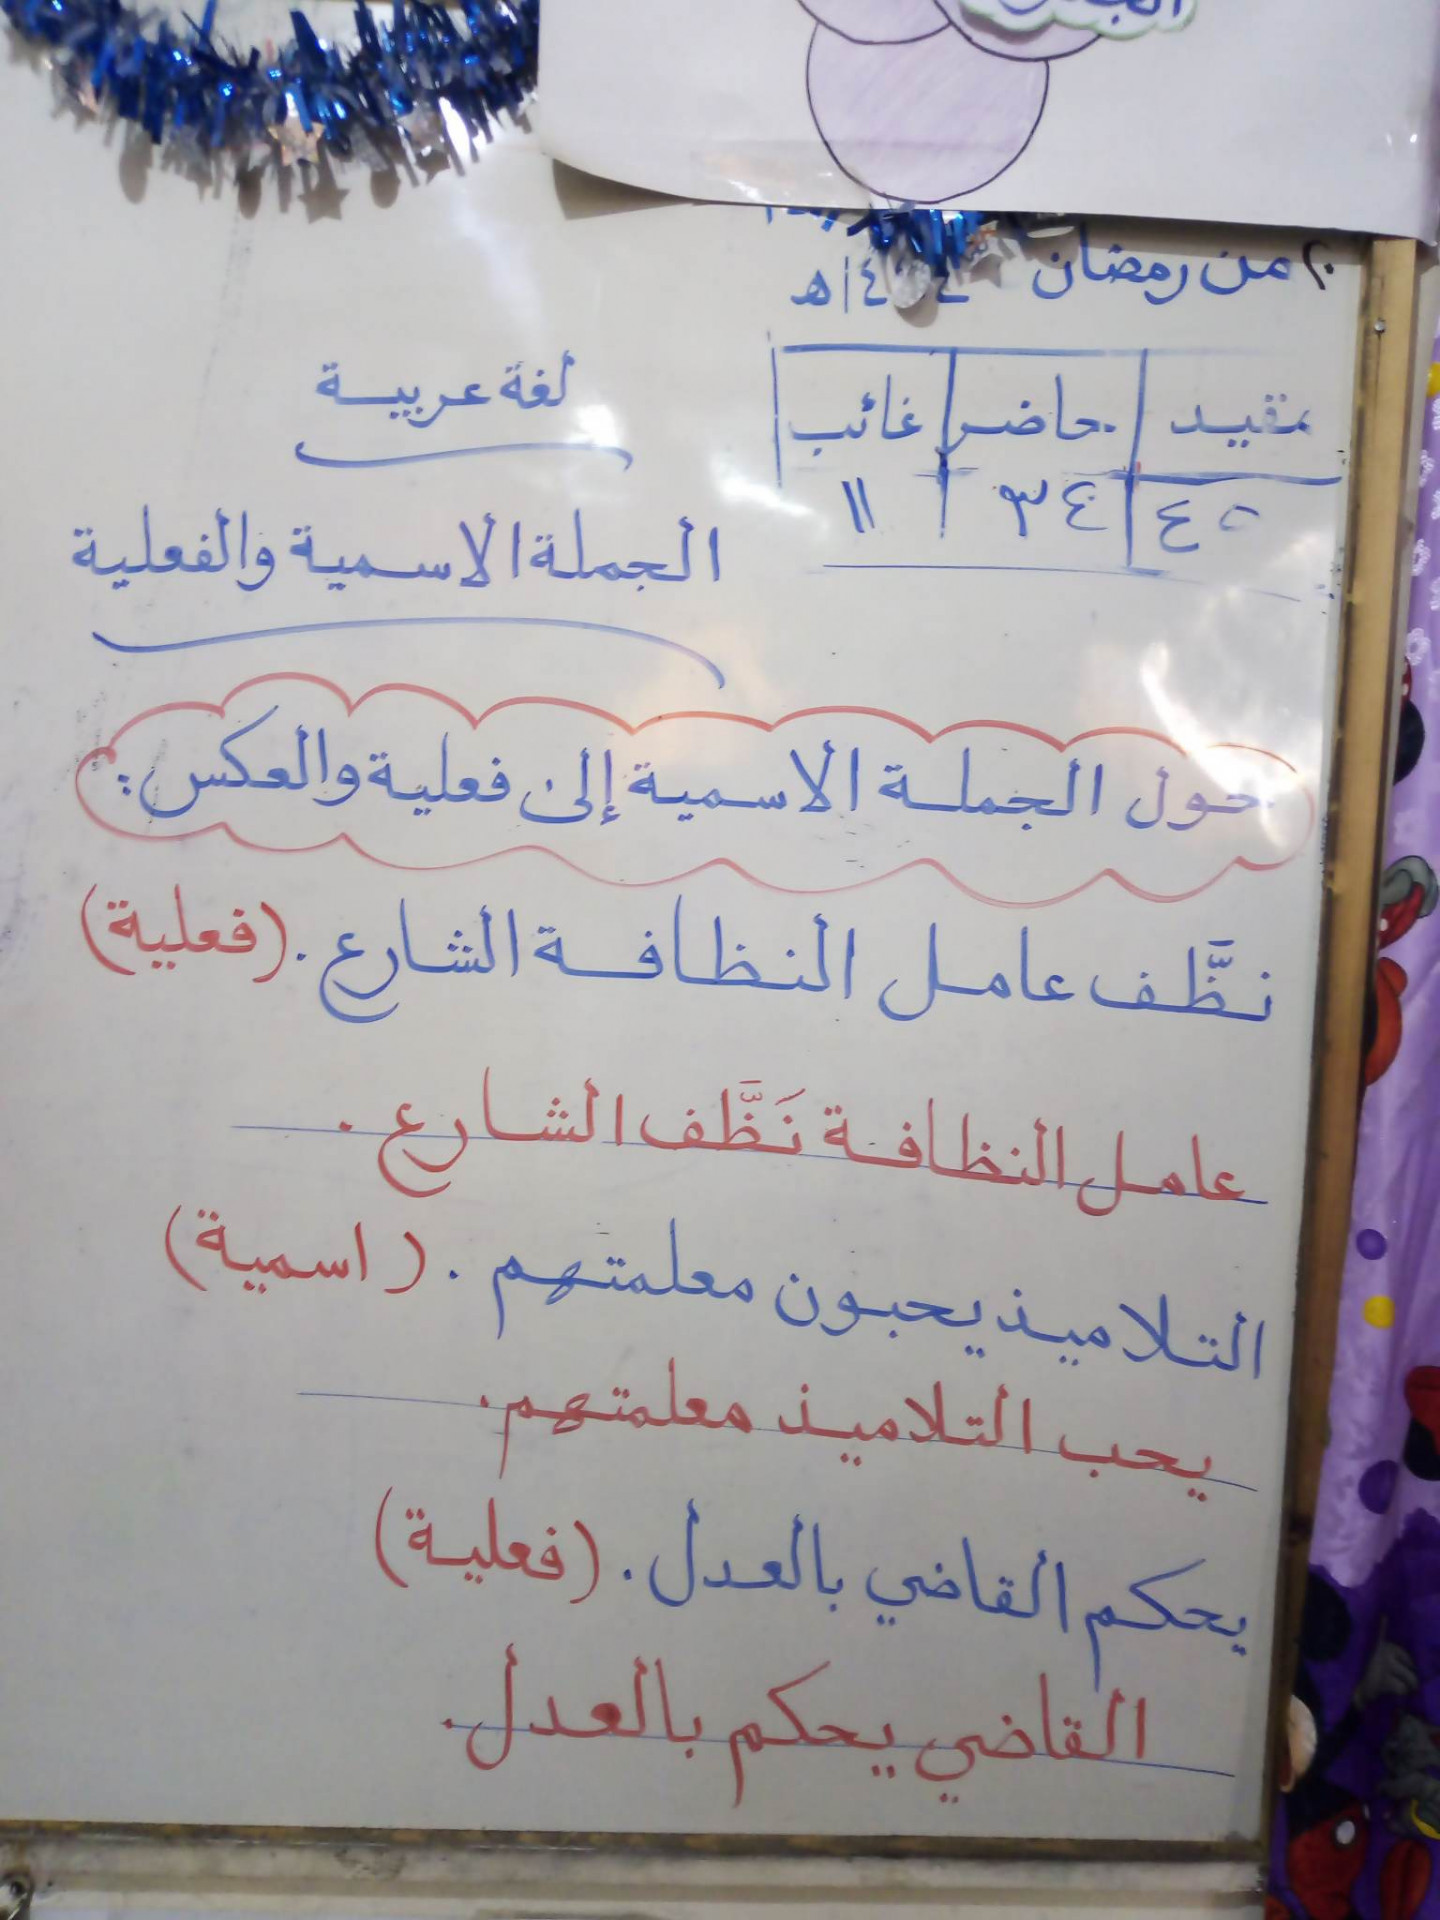 من رمضان
مقيد حاضر غائب
٤٥ ٣٤ ١١
لغة عربية
الجملة الاسمية والفعلية
حول الجملة الاسمية إلى فعلية والعكس:
نظَّف عامل النظافة الشارع. (فعلية)
عامل النظافة نَظَّف الشارع.
التلاميذ يحبون معلمتهم. (اسمية)
يحب التلاميذ معلمتهم.
يحكم القاضي بالعدل. (فعلية)
القاضي يحكم بالعدل.